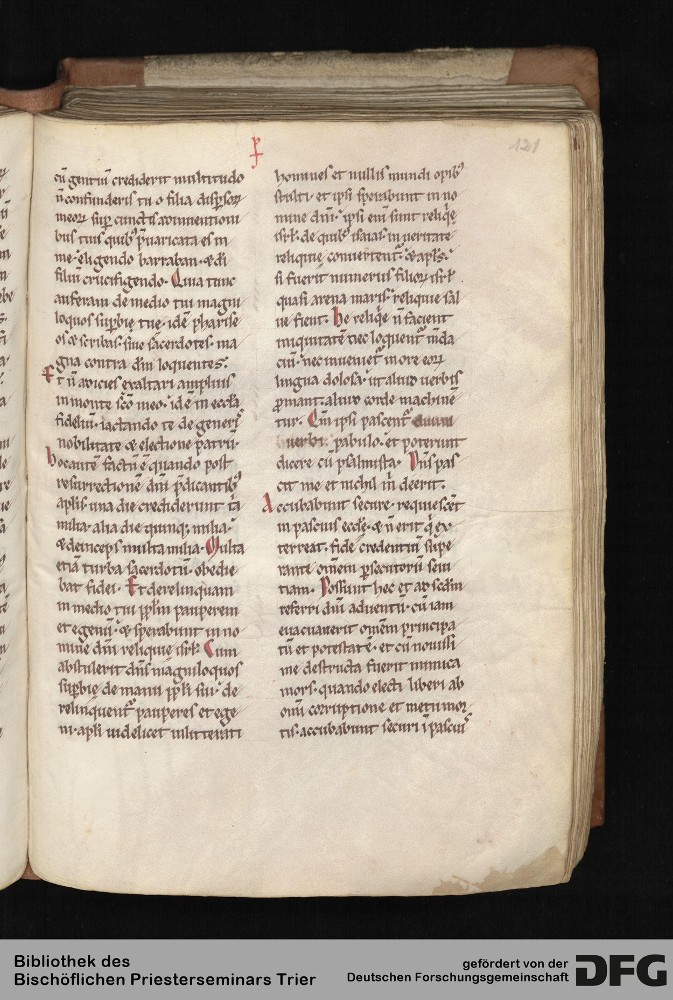 121
cū gentiū crediderit multitudo
n̄ confunderis tu o filia dispersoꝝ
meoꝝ sup cunctis adinuentioni
bus tuis quibꝰ p̄uaricata es in
me · eligendo barraban · & di
filiū crucifigendo · Quia tunc
auferam de medio tui magni
loquos supbie tue · idē pharise
os & scribas · siue sacerdotes · ma
gna contra dm̄ loquentes ·
Et n̄ adicies exaltari amplius
in monte sc̄o meo · idē in eccl̄a
fideliū · iactando te de generis
nobilitate & electione patrū ·
hoc autē factū ē quando post
resurrectionē dn̄i p̄dicantibꝰ
aplis una die crediderunt tā
milia · alia die quinqꝫ milia ·
& deinceps multa milia · Multa
etiā turba sacerdotū · obedie
bat fidei · Et derelinquam
in medio tui pplm pauperem
et egenū · & sperabunt in no
mine dn̄i reliquie isrl · Cum
abstulerit dn̄s magniloquos
supbie de manu ppli sui · de
relinquentˀ pauperes et ege
ni · apli uidelicet inlitterati
homines et nullis mundi opibꝰ
et ipsi sperabunt in no
mine dn̄i · ipsi eni sunt reliqͥe
isrl · de quibꝰ isaias in ueritate
reliquie conuertentˀ · & apls ·
si fuerit numerus filioꝝ isrl
quasi arena maris · reliquie sal
ue fient · he reliqͥe n̄ facient
iniquitatē nec loquentˀ m̄da
ciū · nec inuenietˀ in ore eoꝝ
lingua dolosa · ut aliud uerbis
pmant · aliud corde machinē
tur · Cū ipsi pascentˀ
uerbi pabulo · et poterunt
dicere cū psalmista · Dn̄s pas
cit me et nichil m̄ deerit ·
Accubabunt secure · requiescēt
in pascuis eccl̄e · & n̄ erit qͥ ex
terreat · fide credentiū supe
rante om̄em psecutorū seui
tiam · Possunt hec et ad scd̄m
referri dn̄i aduentū · cū iam
euacuauerit om̄em principa
tū et potestatē · et cū nouissi
me destructa fuerit inimica
mors · quando electi liberi ab
om̄i corruptione et metu mor
tis · accubabunt securi ī pascuis
Bibliothek des
Bischöflichen Priesterseminars Trier
gefördert von der
Deutschen Forschungsgemeinschaft
DFG